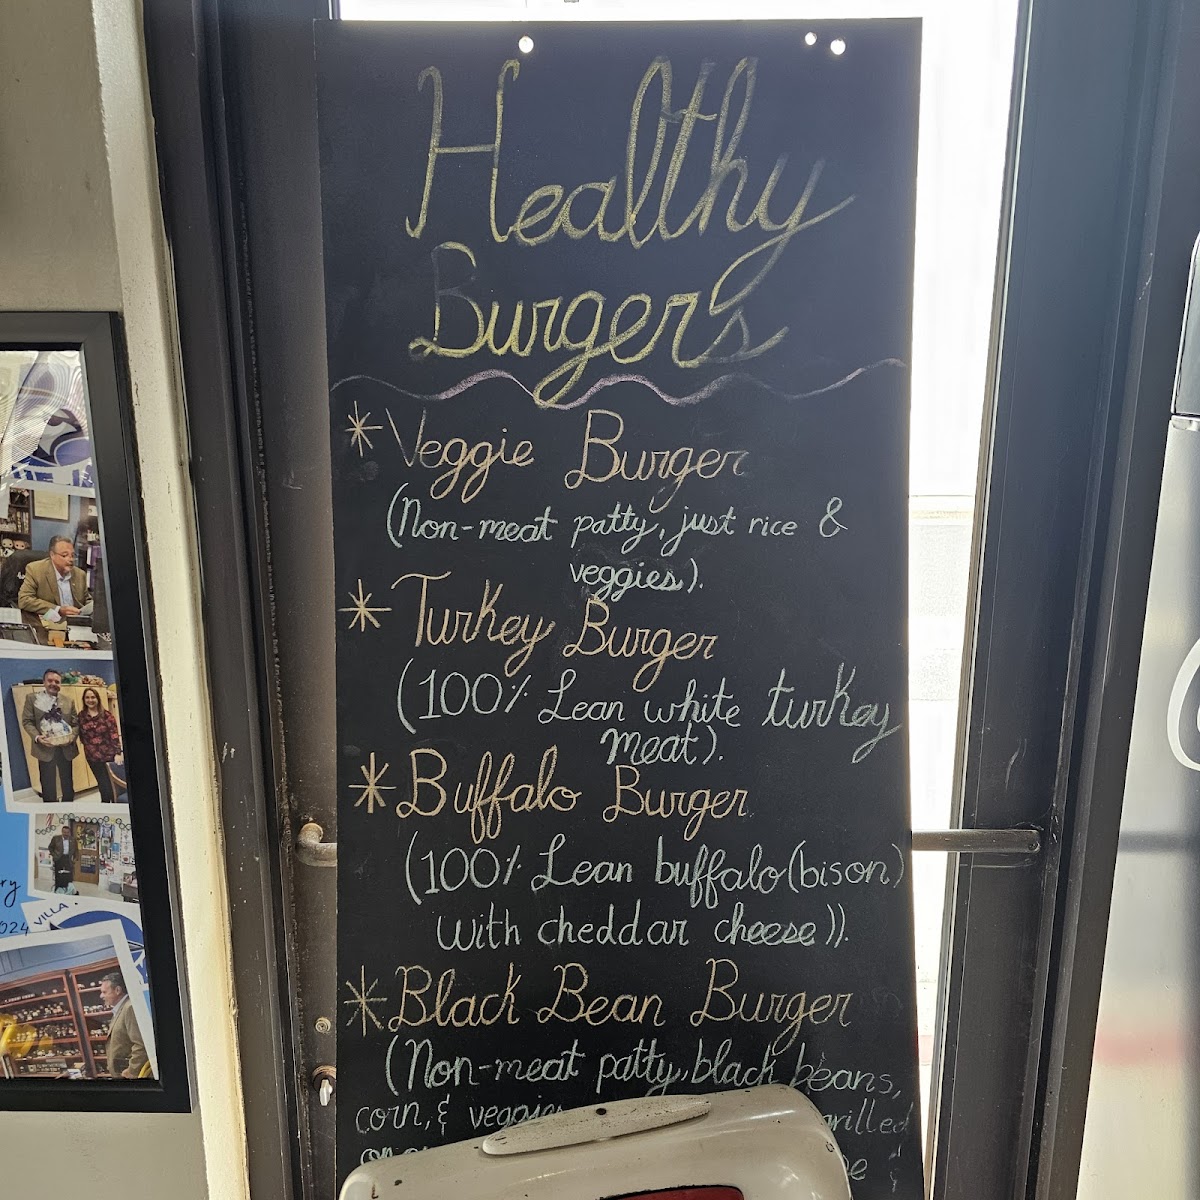 Healthy
Burgers
* Veggie Burger
(Non-meat patty, just rice &
veggies).
* Turkey Burger
(100% Lean white turkey
meat).
* Buffalo Burger
(100% Lean buffalo (bison)
with cheddar cheese)).
* Black Bean Burger
(Non-meat patty, black beans,
corn, & veggies
VILLA